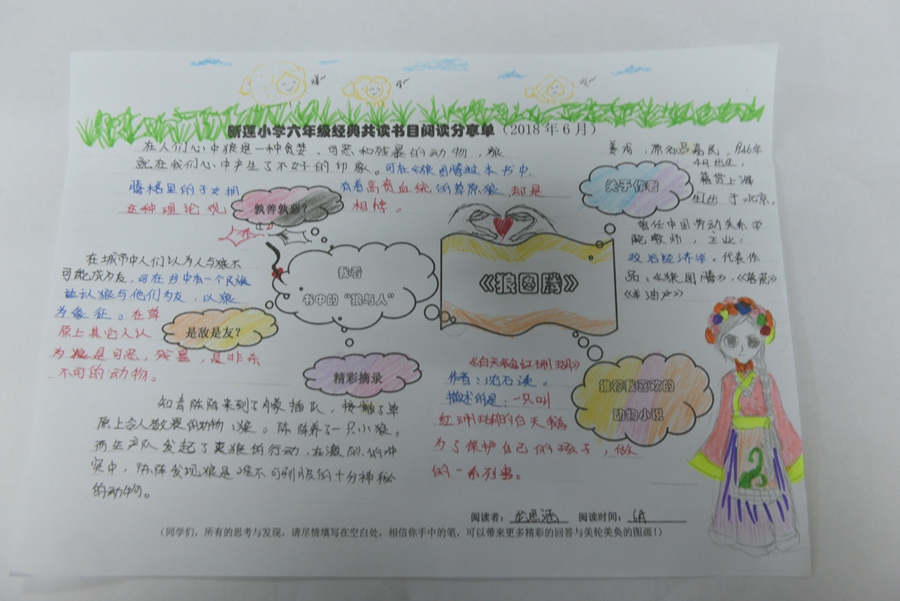 新莲小学六年级经典共读书目阅读分享单（2018年6月）
在人们心中狼是一种贪婪、可恶和残暴的动物，狼
就在我们心中产生了不好的印象。可在《狼图腾》这本书中,
腾格里的子 有着高贵血统的草原狼 却是
这种理论观 相悖。
孰善孰恶？
关于作者
姜戎，原名吕嘉民，1946年
4月出生，
籍贯上海
于北京，
曾任中国劳动关系学
院教师，主业：
政治经济学。代表作
品：《狼图腾》，《
我看
书中的“狼与人”
《狼图腾》
在城市中人们以为人与狼不
可能成为友，可在书中有一个民族
认狼与他们为友，以狼
为象征。在草
原上其它人认
为狼是可恶，残暴，是非杀
不可的动物。
是敌是友？
精彩摘录
知青陈阵来到了 插队，接触了草
原上令人敬畏的动物：狼。陈阵养了一只小狼。
而生产队发起了灭狼的行动，在激烈的冲
突中，陈阵发现狼是 不可驯服的十分神秘
的动物。
推荐我喜欢的
动物小说
《白天鹅红珊瑚》
作者：沈石溪。
描述的是：一只叫
红珊瑚的白天鹅
为了保护自己的孩子，做
的一系列事。
阅读者： 龙思涵 阅读时间：
（同学们，所有的思考与发现，请尽情填写在空白处，相信你手中的笔，可以带来更多精彩的回答与美轮美奂的图画！）